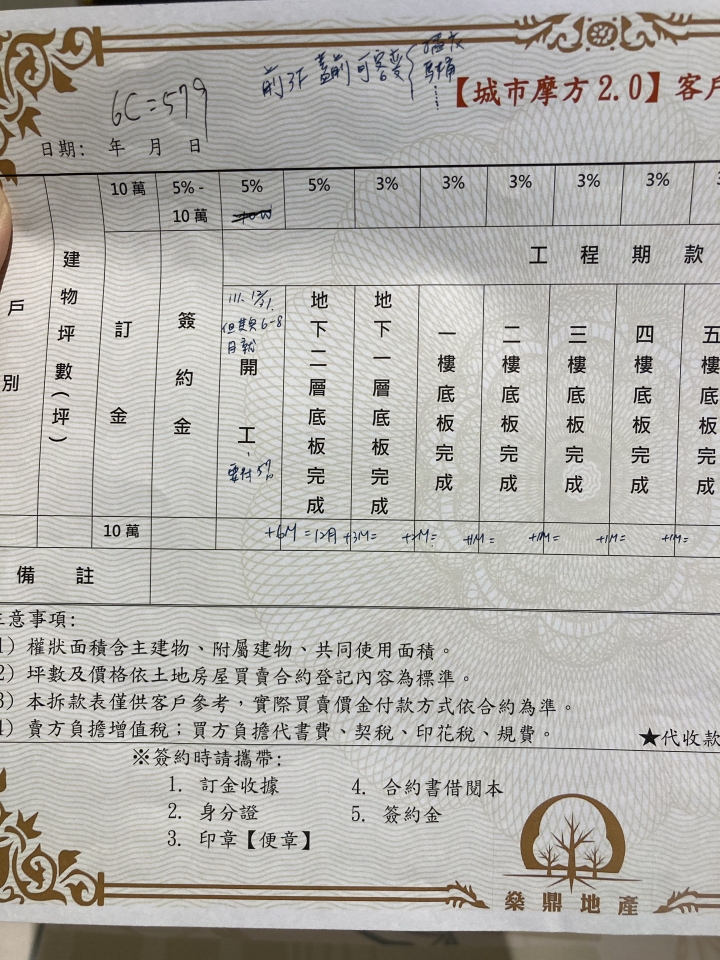 前3F 蓋前可客變
6C=579
【城市摩方2.0】客戶
日期: 年 月 日
10萬 5%-10萬 5% 5% 3% 3% 3% 3% 3%
工程期款
戶別
建物坪數(坪)
訂金
簽約金
111. 12/31.
但其實6-8
月就
開工
要付5%
地下二層底板完成
地下一層底板完成
一樓底板完成
二樓底板完成
三樓底板完成
四樓底板完成
五樓底板完成
10萬 +6M=12月 +3M= +2M= +1M= +1M= +1M= +1M=
備註
注意事項:
1) 權狀面積含主建物、附屬建物、共同使用面積。
2) 坪數及價格依土地房屋買賣合約登記內容為標準。
3) 本拆款表僅供客戶參考，實際買賣價金付款方式依合約為準。
4) 賣方負擔增值稅；買方負擔代書費、契稅、印花稅、規費。
★代收款
※簽約時請攜帶:
1. 訂金收據
2. 身分證
3. 印章【便章】
4. 合約書借閱本
5. 簽約金
燊鼎地產